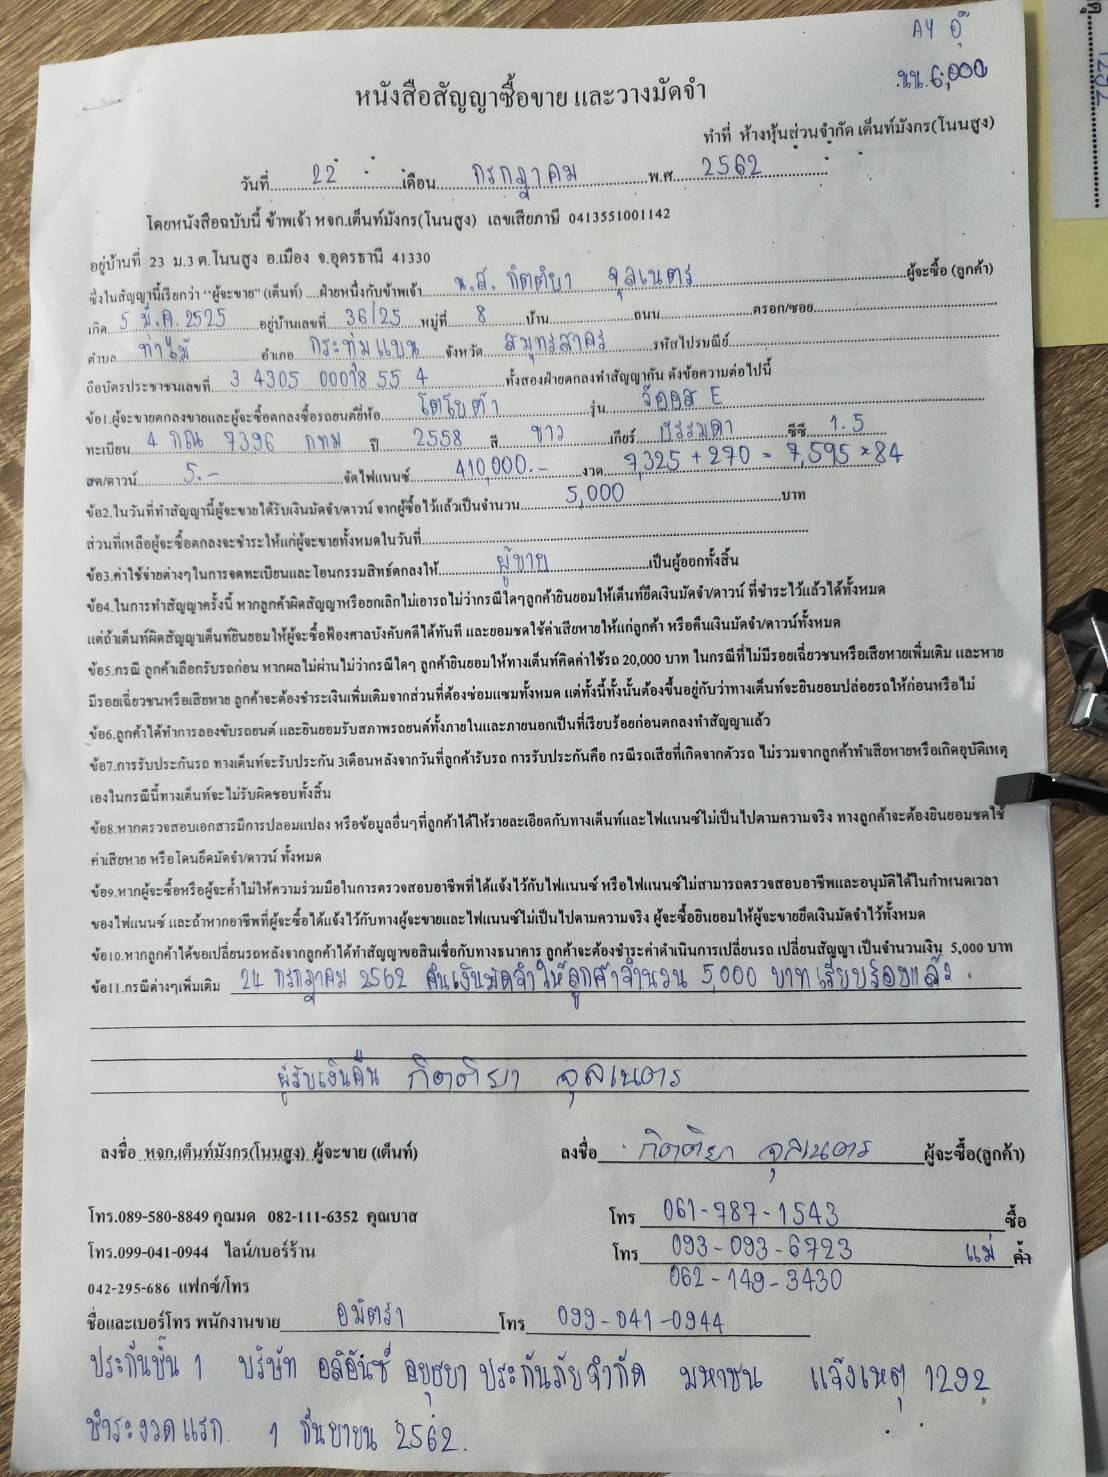 AY อุ๊
นน. 6,000
หนังสือสัญญาซื้อขาย และวางมัดจำ
ทำที่ ห้างหุ้นส่วนจำกัด เต็นท์มังกร(โนนสูง)
วันที่ 22 เดือน กรกฎาคม พ.ศ. 2562
โดยหนังสือฉบับนี้ ข้าพเจ้า หจก.เต็นท์มังกร(โนนสูง) เลขเสียภาษี 0413551001142
อยู่บ้านที่ 23 ม.3 ต.โนนสูง อ.เมือง จ.อุดรธานี 41330
ซึ่งในสัญญานี้เรียกว่า "ผู้จะขาย" (เต็นท์) ....ฝ่ายหนึ่งกับข้าพเจ้า น.ส. กิตติยา จุลเนตร ผู้จะซื้อ (ลูกค้า)
เกิด 5 มี.ค. 2525 อยู่บ้านเลขที่ 36/25 หมู่ที่ 8 บ้าน ถนน ตรอก/ซอย
ตำบล ท่าไม้ อำเภอ กระทุ่มแบน จังหวัด สมุทรสาคร รหัสไปรษณีย์
ถือบัตรประชาชนเลขที่ 3 4305 00018 55 4 ทั้งสองฝ่ายตกลงทำสัญญากัน ดังข้อความต่อไปนี้
ข้อ1.ผู้จะขายตกลงขายและผู้จะซื้อตกลงซื้อรถยนต์ยี่ห้อ โตโยต้า รุ่น วีออส E
ทะเบียน 4 กณ 7396 กทม ปี 2558 สี ขาว เกียร์ ธรรมดา ซีซี 1.5
สด/ดาวน์ 5.- จัดไฟแนนซ์ 410,000.- งวด 7,325 + 270 = 7,595 × 84
ข้อ2.ในวันที่ทำสัญญานี้ผู้จะขายได้รับเงินมัดจำ/ดาวน์ จากผู้ซื้อไว้แล้วเป็นจำนวน 5,000 บาท
ส่วนที่เหลือผู้จะซื้อตกลงจะชำระให้แก่ผู้จะขายทั้งหมดในวันที่
ข้อ3.ค่าใช้จ่ายต่างๆในการจดทะเบียนและโอนกรรมสิทธิ์ตกลงให้ ผู้ขาย เป็นผู้ออกทั้งสิ้น
ข้อ4.ในการทำสัญญาครั้งนี้ หากลูกค้าผิดสัญญาหรือยกเลิกไม่เอารถไม่ว่ากรณีใดๆลูกค้ายินยอมให้เต็นท์ยึดเงินมัดจำ/ดาวน์ ที่ชำระไว้แล้วได้ทั้งหมด
แต่ถ้าเต็นท์ผิดสัญญาเต็นท์ยินยอมให้ผู้จะซื้อฟ้องศาลบังคับคดีได้ทันที และยอมชดใช้ค่าเสียหายให้แก่ลูกค้า หรือคืนเงินมัดจำ/ดาวน์ทั้งหมด
ข้อ5.กรณี ลูกค้าเลือกรับรถก่อน หากผลไม่ผ่านไม่ว่ากรณีใดๆ ลูกค้ายินยอมให้ทางเต็นท์คิดค่าใช้รถ 20,000 บาท ในกรณีที่ไม่มีรอยเฉี่ยวชนหรือเสียหายเพิ่มเติม และหาย
มีรอยเฉี่ยวชนหรือเสียหาย ลูกค้าจะต้องชำระเงินเพิ่มเติมจากส่วนที่ต้องซ่อมแซมทั้งหมด แต่ทั้งนี้ทั้งนั้นต้องขึ้นอยู่กับว่าทางเต็นท์จะยินยอมปล่อยรถให้ก่อนหรือไม่
ข้อ6.ลูกค้าได้ทำการลองขับรถยนต์ และยินยอมรับสภาพรถยนต์ทั้งภายในและภายนอกเป็นที่เรียบร้อยก่อนตกลงทำสัญญาแล้ว
ข้อ7.การรับประกันรถ ทางเต็นท์จะรับประกัน 3เดือนหลังจากวันที่ลูกค้ารับรถ การรับประกันคือ กรณีรถเสียที่เกิดจากตัวรถ ไม่รวมจากลูกค้าทำเสียหายหรือเกิดอุบัติเหตุ
เองในกรณีนี้ทางเต็นท์จะไม่รับผิดชอบทั้งสิ้น
ข้อ8.หากตรวจสอบเอกสารมีการปลอมแปลง หรือข้อมูลอื่นๆที่ลูกค้าได้ให้รายละเอียดกับทางเต็นท์และไฟแนนซ์ไม่เป็นไปตามความจริง ทางลูกค้าจะต้องยินยอมชดใช้
ค่าเสียหาย หรือโดนยึดมัดจำ/ดาวน์ ทั้งหมด
ข้อ9.หากผู้จะซื้อหรือผู้จะค้ำไม่ให้ความร่วมมือในการตรวจสอบอาชีพที่ได้แจ้งไว้กับไฟแนนซ์ หรือไฟแนนซ์ไม่สามารถตรวจสอบอาชีพและอนุมัติได้ในกำหนดเวลา
ของไฟแนนซ์ และถ้าหากอาชีพที่ผู้จะซื้อได้แจ้งไว้กับทางผู้จะขายและไฟแนนซ์ไม่เป็นไปตามความจริง ผู้จะซื้อยินยอมให้ผู้จะขายยึดเงินมัดจำไว้ทั้งหมด
ข้อ10.หากลูกค้าได้ขอเปลี่ยนรถหลังจากลูกค้าได้ทำสัญญาขอสินเชื่อกับทางธนาคาร ลูกค้าจะต้องชำระค่าดำเนินการเปลี่ยนรถ เปลี่ยนสัญญา เป็นจำนวนเงิน 5,000 บาท
ข้อ11.กรณีต่างๆเพิ่มเติม 24 กรกฎาคม 2562 คืนเงินมัดจำให้ลูกค้าจำนวน 5,000 บาทเรียบร้อยแล้ว.
ผู้รับเงินคืน กิตติยา จุลเนตร
ลงชื่อ หจก.เต็นท์มังกร(โนนสูง) ผู้จะขาย (เต็นท์) ลงชื่อ กิตติยา จุลเนตร ผู้จะซื้อ(ลูกค้า)
โทร.089-580-8849 คุณมด 082-111-6352 คุณบาส โทร 061-787-1543 ซื้อ
โทร.099-041-0944 ไลน์/เบอร์ร้าน โทร 093-093-6723 แม่ ค้ำ
042-295-686 แฟกซ์/โทร 062-149-3430
ชื่อและเบอร์โทร พนักงานขาย อมิตรา โทร 099-041-0944
ประกันชั้น 1 บริษัท อลิอันซ์ อยุธยา ประกันภัยจำกัด มหาชน แจ้งเหตุ 1292
ชำระงวดแรก 1 กันยายน 2562.